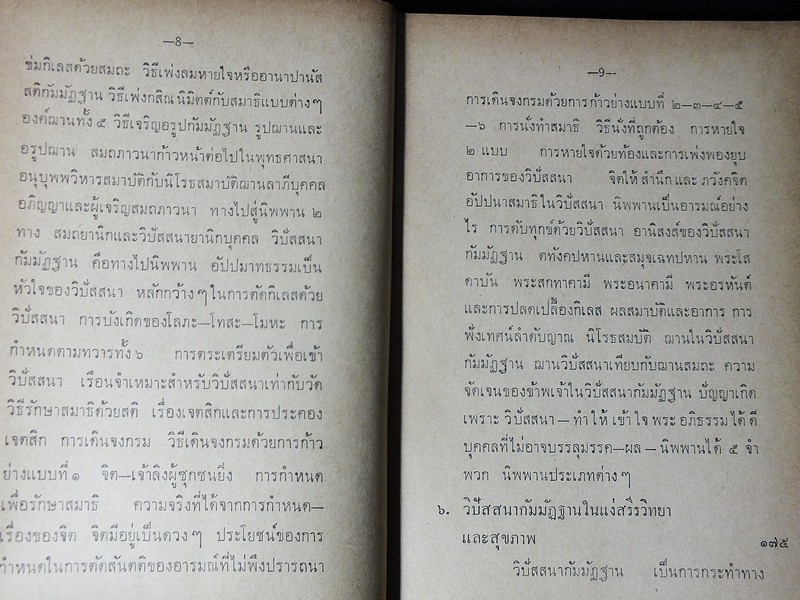 —8—
ข่มกิเลสด้วยสมถะ วิธีเพ่งลมหายใจหรืออานาปานัส
สติกัมมัฏฐาน วิธีเพ่งกสิณ นิมิตต์กับสมาธิแบบต่างๆ
องค์ฌานทั้ง ๕ วิธีเจริญอรูปกัมมัฏฐาน รูปฌานและ
อรูปฌาน สมถภาวนาก้าวหน้าต่อไปในพุทธศาสนา
อนุบุพพวิหารสมาบัติกับนิโรธสมาบัติฌานลาภีบุคคล
อภิญญาและผู้เจริญสมถภาวนา ทางไปสู่นิพพาน ๒
ทาง สมถยานิกและวิปัสสนายานิกบุคคล วิปัสสนา
กัมมัฏฐาน คือทางไปนิพพาน อัปปมาทธรรมเป็น
หัวใจของวิปัสสนา หลักกว้างๆ ในการตัดกิเลสด้วย
วิปัสสนา การบังเกิดของโลภะ—โทสะ—โมหะ การ
กำหนดตามทวารทั้ง ๖ การตระเตรียมตัวเพื่อเข้า
วิปัสสนา เรือนจำเหมาะสำหรับวิปัสสนาเท่ากับวัด
วิธีรักษาสมาธิด้วยสติ เรื่องเจตสิกและการประคอง
เจตสิก การเดินจงกรม วิธีเดินจงกรมด้วยการก้าว
ย่างแบบที่ ๑ จิต—เจ้าลิงผู้ซุกซนยิ่ง การกำหนด
เพื่อรักษาสมาธิ ความจริงที่ได้จากการกำหนด—
เรื่องของจิต จิตมีอยู่เป็นดวงๆ ประโยชน์ของการ
กำหนดในการตัดสันตติของอารมณ์ที่ไม่พึงปรารถนา
—9—
การเดินจงกรมด้วยการก้าวย่างแบบที่ ๒—๓—๔—๕
—๖ การนั่งทำสมาธิ วิธีนั่งที่ถูกต้อง การหายใจ
๒ แบบ การหายใจด้วยท้องและการเพ่งพองยุบ
อาการของวิปัสสนา จิตใต้สำนึก และ ภวังคจิต
อัปปนาสมาธิในวิปัสสนา นิพพานเป็นอารมณ์อย่าง
ไร การดับทุกข์ด้วยวิปัสสนา อานิสงส์ของวิปัสสนา
กัมมัฏฐาน ตทังคปหานและสมุจเฉทปหาน พระโส
ดาบัน พระสกทาคามี พระอนาคามี พระอรหันต์
และการปลดเปลื้องกิเลส ผลสมาบัติและอาการ การ
ฟังเทศน์ลำดับญาณ นิโรธสมบัติ ฌานในวิปัสสนา
กัมมัฏฐาน ฌานวิปัสสนาเทียบกับฌานสมถะ ความ
จัดเจนของข้าพเจ้าในวิปัสสนากัมมัฏฐาน ปัญญาเกิด
เพราะ วิปัสสนา — ทำให้ เข้าใจ พระ อภิธรรม ได้ ดี
บุคคลที่ไม่อาจบรรลุมรรค—ผล — นิพพานได้ ๕ จำ
พวก นิพพานประเภทต่างๆ
๖. วิปัสสนากัมมัฏฐานในแง่สรีรวิทยา
และสุขภาพ ๑๗๕
วิปัสสนากัมมัฏฐาน เป็นการกระทำทาง